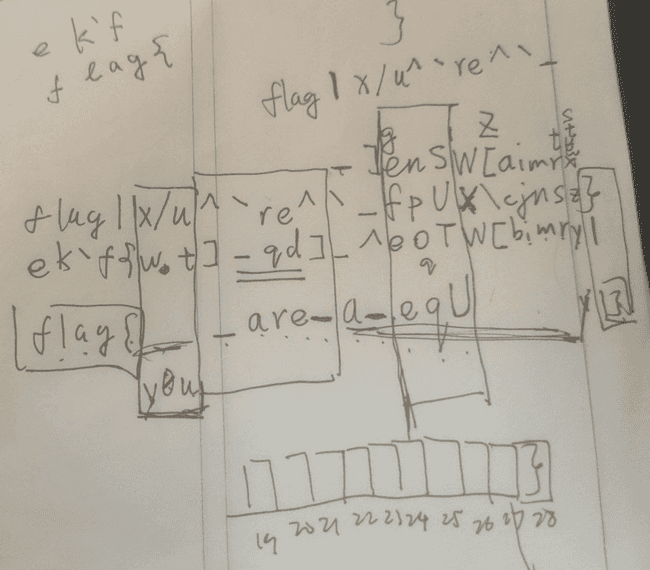 e k`f
f lag{
}
flag|x/u^`re^`_
g Z t s
_]enSW[aimrx
flag|x/u^`re^`_fpUX\cjnsz}
ek`f{w.t]_qd]_^eoTW[bimry|
q
flag{ _are_a_eqU
y0u
}
19 20 21 22 23 24 25 26 27 28